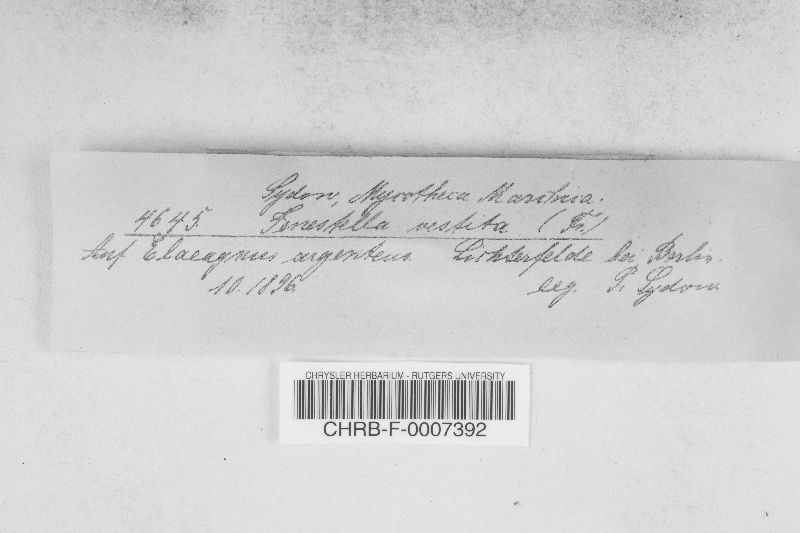 Sydow, Mycotheca Marchica.
4645. Fenestella vestita (Fr.)
Auf Elaeagnus argenteus. Lichterfelde bei Berlin.
10. 1896 leg. P. Sydow
CHRYSLER HERBARIUM - RUTGERS UNIVERSITY
CHRB-F-0007392